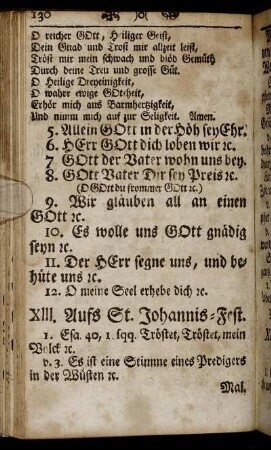 130 )o(
O reicher GOtt, Heiliger Geist,
Dein Gnad und Trost mir allzeit leist,
Tröst mir mein schwach und blöd Gemüth
Durch deine Treu und grosse Güt.
O Heilige Dreyeinigkeit,
O wahre ewige GOttheit,
Erhör mich aus Barmhertzigkeit,
Und nimm mich auf zur Seligkeit. Amen.
5. Allein GOtt in der Höh sey Ehr.
6. HErr GOtt dich loben wir ꝛc.
7 GOtt der Vater wohn uns bey.
8. GOtt Vater Dir sey Preis ꝛc.
(O GOtt du frommer GOtt ꝛc.)
9. Wir glauben all an einen
GOtt ꝛc.
10. Es wolle uns GOtt gnädig
seyn ꝛc.
11. Der HErr segne uns, und be-
hüte uns ꝛc.
12. O meine Seel erhebe dich ꝛc.
XIII. Aufs St. Johannis-Fest.
1. Esa. 40, 1. sqq. Tröstet, Tröstet, mein
Volck ꝛc.
v. 3. Es ist eine Stimme eines Predigers
in der Wüsten ꝛc.
Mal.